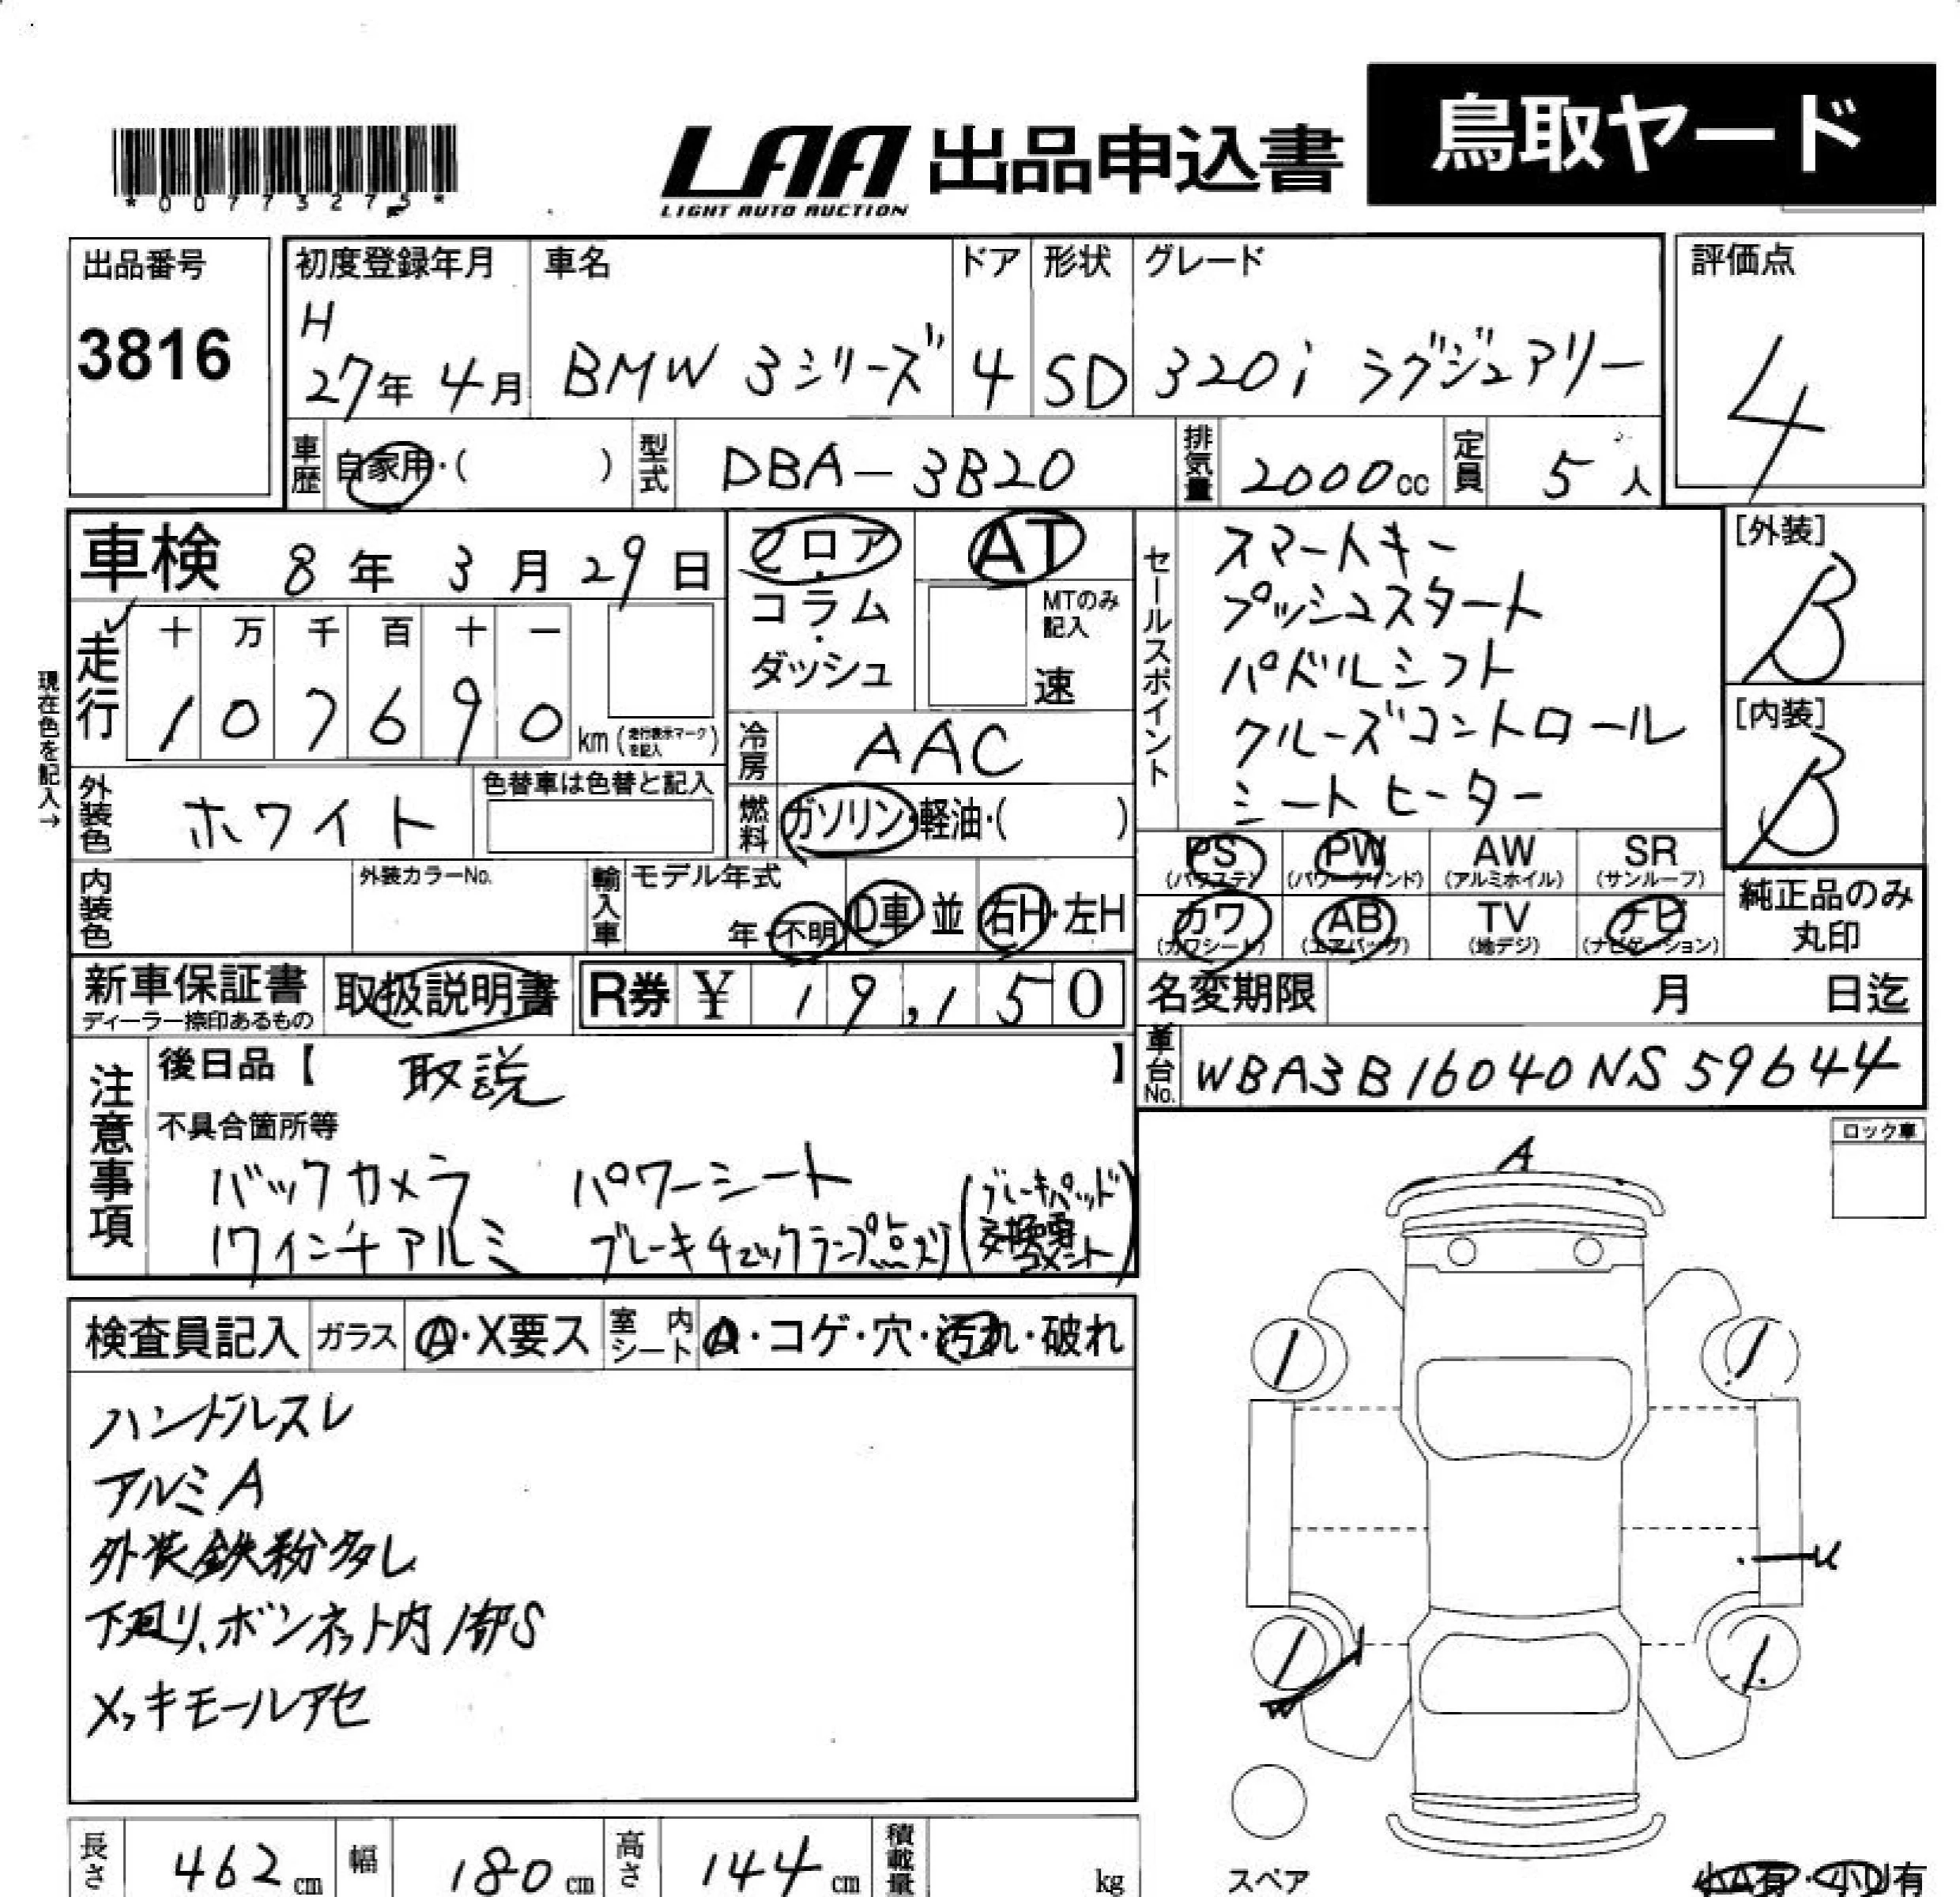 鳥取ヤード
LAA 出品申込書
LIGHT AUTO AUCTION
*00773275*
出品番号
3816
初度登録年月
H
27年 4月
車名
BMW 3シリーズ
ドア
4
形状
SD
グレード
320i ラグジュアリー
評価点
4
車歴 自家用・( )
型式 DBA-3B20
排気量 2000cc
定員 5人
車検 8年 3月 29日
フロア・コラム・ダッシュ
AT
MTのみ記入
速
セールスポイント
スマートキー
プッシュスタート
パドルシフト
クルーズコントロール
シートヒーター
[外装]
B
[内装]
B
現在色を記入→
走行
十 万 千 百 十 一
1 0 7 6 9 0 km (走行表示マークを記入)
冷房 AAC
外装色 ホワイト
色替車は色替と記入
燃料 ガソリン・軽油・( )
内装色
外装カラーNo.
輸入車
モデル年式
年・不明
D車 並
右H・左H
PS (パワステ)
PW (パワーウィンド)
AW (アルミホイル)
SR (サンルーフ)
カワ (カワシート)
AB (エアバッグ)
TV (地デジ)
ナビ (ナビゲーション)
純正品のみ丸印
新車保証書
ディーラー捺印あるもの
取扱説明書
R券 ¥ 19,150
名変期限 月 日迄
車台No. WBA3B16040NS59644
注意事項
後日品【 取説 】
不具合箇所等
バックカメラ パワーシート
17インチアルミ ブレーキチェックランプ点ズリ (ブレーキパッド交換要コメント)
ロック車
検査員記入
ガラス A・X要ス
室内シート A・コゲ・穴・汚れ・破れ
ハンドルスレ
アルミA
外装鉄粉多し
下廻り、ボンネット内1部S
メッキモールアセ
A
U
W
スペア
小A有・小U有
長さ 462cm
幅 180cm
高さ 144cm
積載量 kg